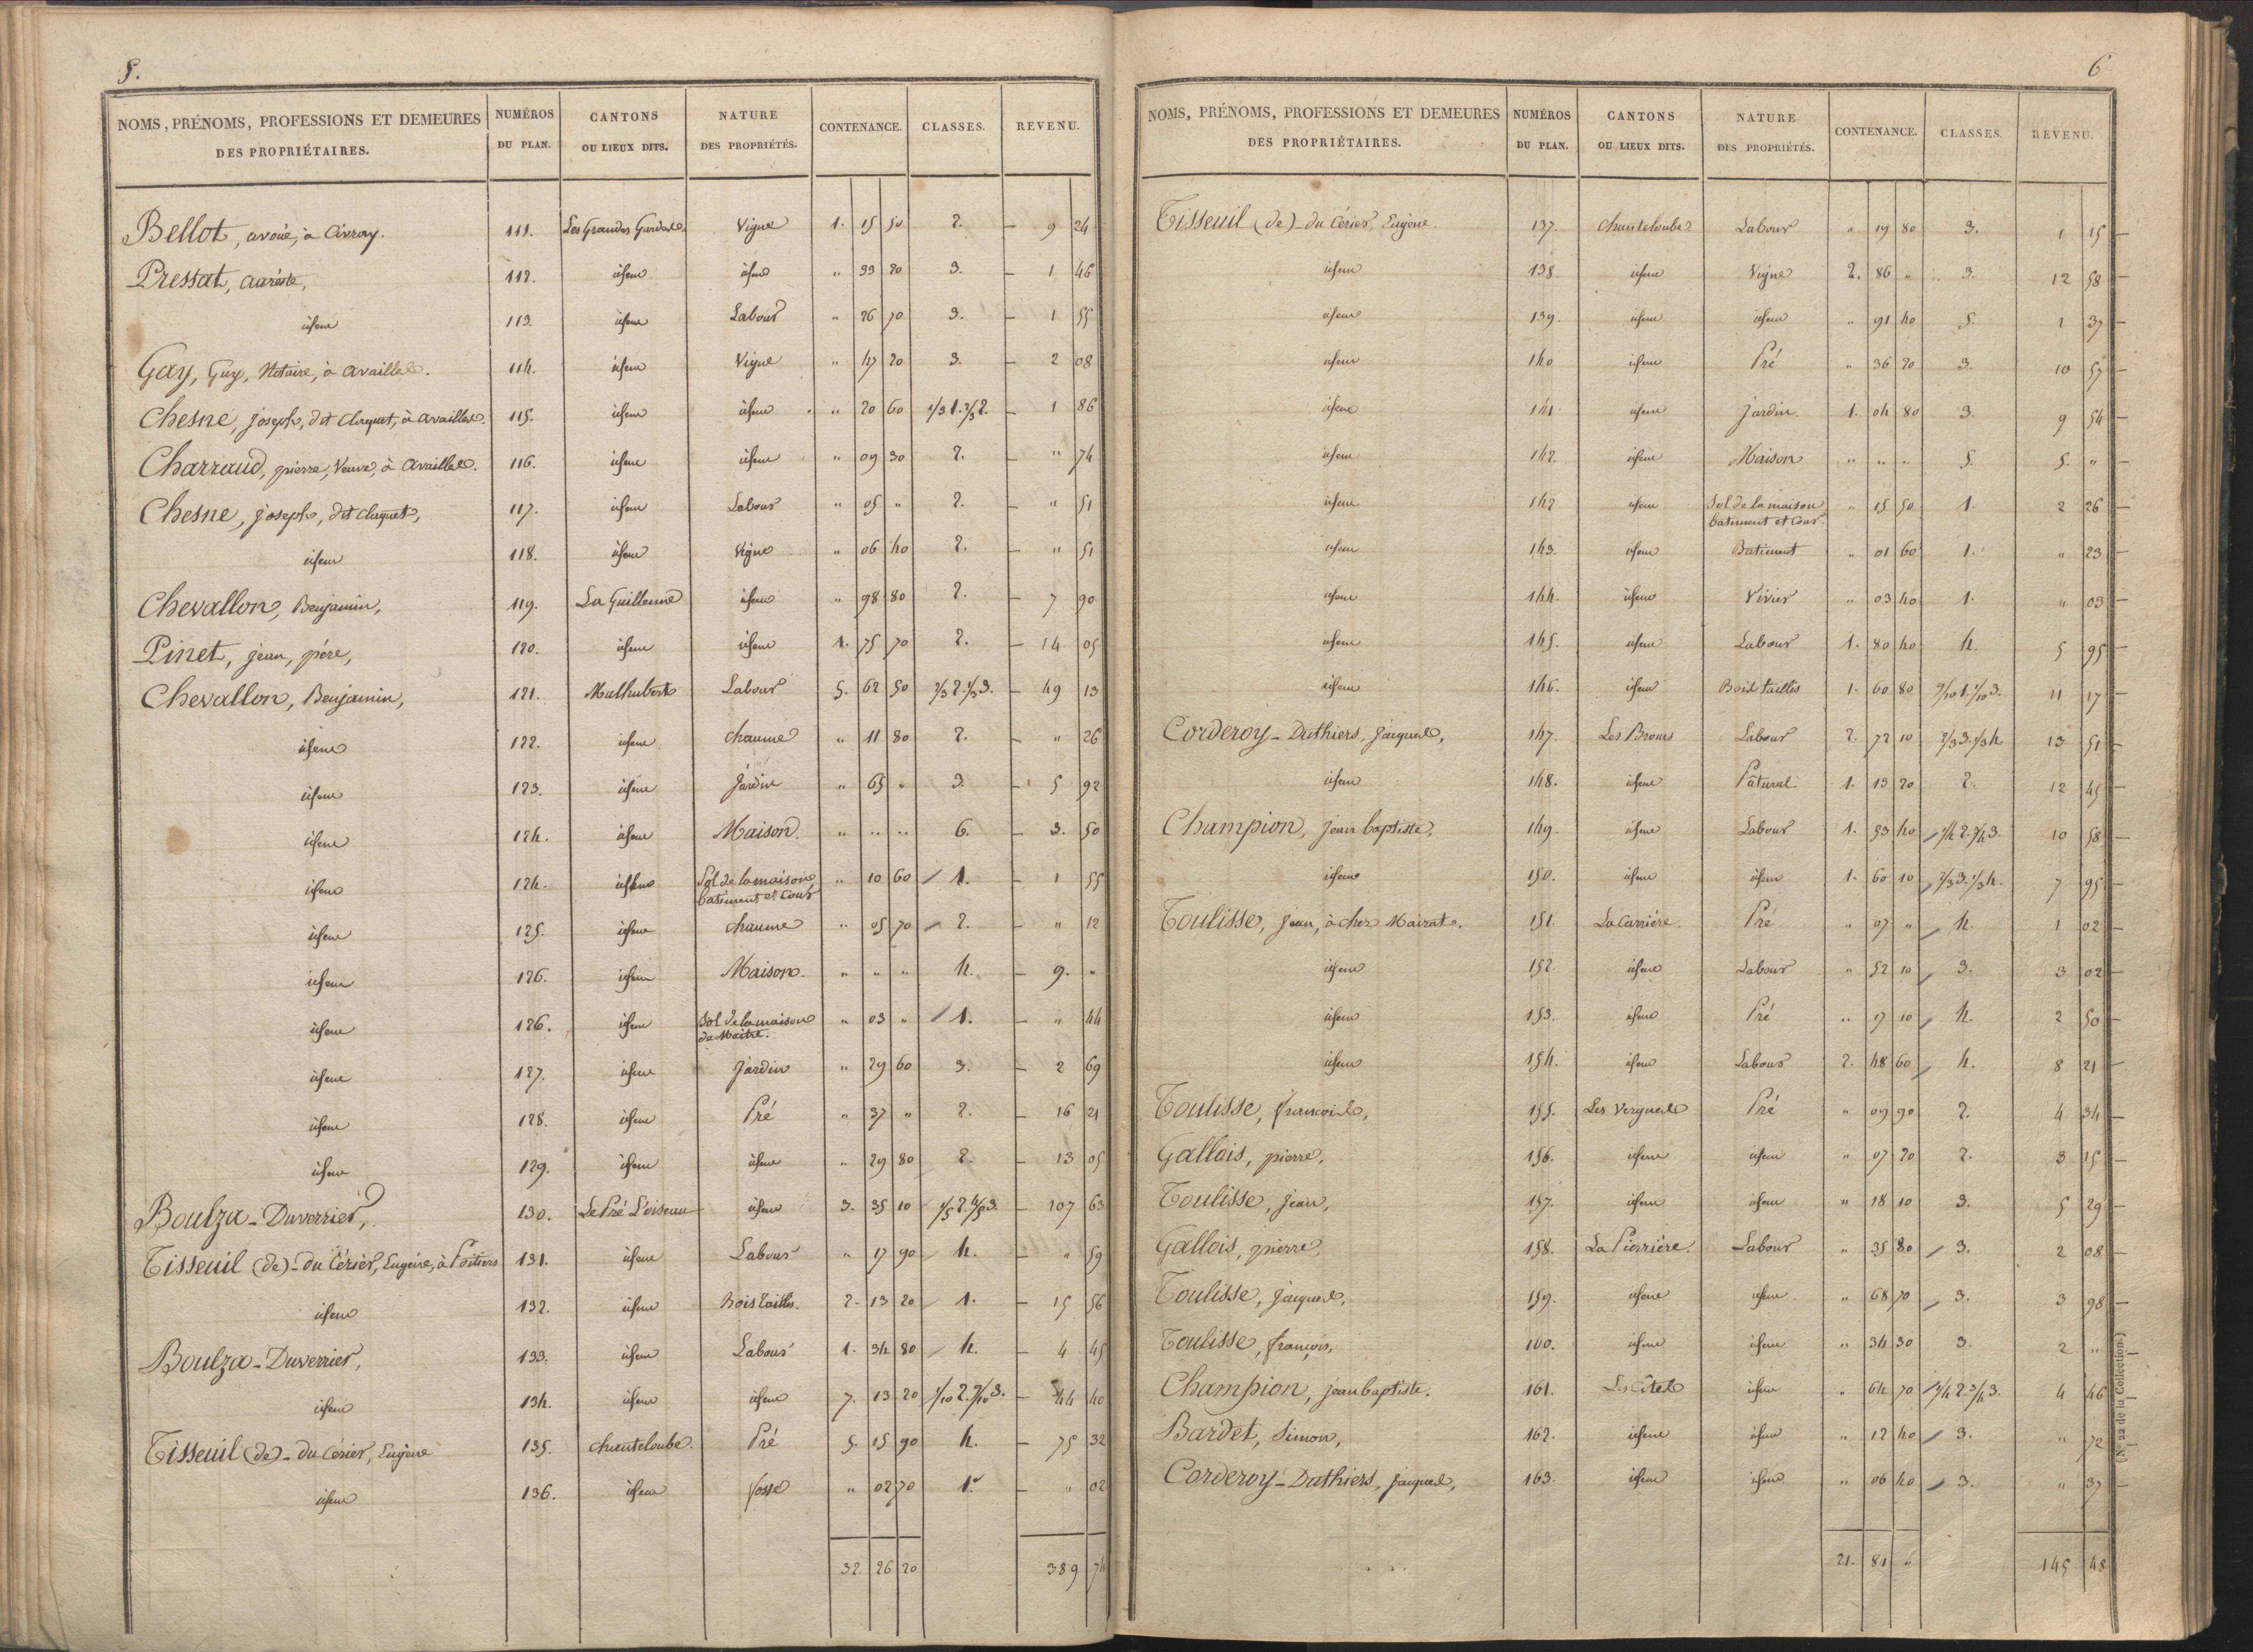 5.
NOMS, PRÉNOMS, PROFESSIONS ET DEMEURES DES PROPRIÉTAIRES. NUMÉROS DU PLAN. CANTONS OU LIEUX DITS. NATURE DES PROPRIÉTÉS. CONTENANCE. CLASSES. REVENU.
Bellot, avoué, à Civray. 111. Les Grandes Vigne 1. 15 50 2. 9 24
Pressat, 112. idem idem " 33 20 3. 1 46
idem 113. idem Labour " 26 70 3. 1 55
Gay, Guy, Notaire, à availles. 114. idem Vigne " 47 20 3. 2 08
Chesne, joseph, dit Cluquet, à availles. 115. idem idem " 20 60 1/3 1. 2/3 2. 1 86
Charraud, pierre, Veuve, à availles. 116. idem idem " 09 30 2. " 74
Chesne, joseph, dit Cluquet, 117. idem Labour " 05 " 2. " 51
idem 118. idem Vigne " 06 40 2. " 51
Chevallon, Benjamin, 119. La Guillenne idem " 98 80 2. 7 90
Pinet, jean, père, 120. idem idem 1. 75 70 2. 14 05
Chevallon, Benjamin, 121. Malhubert Labour 5. 62 50 2/3 2. 1/3 3. 49 13
idem 122. idem chaume " 11 80 2. " 26
idem 123. idem Jardin " 65 " 3. 5 92
idem 124. idem Maison. " " " 6. 3. 50
idem 124. idem Sol de la maison batiment et Cour " 10 60 1. 1 55
idem 125. idem chaume " 05 70 2. " 12
idem 126. idem Maison. " " " 4. 9. "
idem 126. idem Sol de la maison de Maitre. " 03 " 1. " 44
idem 127. idem Jardin " 29 60 3. 2 69
idem 128. idem Pré " 37 " 2. 16 21
idem 129. idem idem " 29 80 2. 13 05
Boulza-Duverrier, 130. Le Pré L'oiseau idem 3. 35 10 1/5 2. 4/5 3. 107 63
Tisseuil (de)-du Cérier, Eugène, à Poitiers 131. idem Labour " 17 90 4. " 59
idem 132. idem Bois taillis. 2. 13 20 1. 15 56
Boulza-Duverrier, 133. idem Labour 1. 34 80 4. 4 45
idem 134. idem idem 7. 13 20 1/10 2. 9/10 3. 44 40
Tisseuil (de)-du Cérier, Eugène 135. chanteloube. Pré 5. 15 90 4. 75 32
idem 136. idem fosse " 02 70 1. " 02
32. 26 20 389 74
6
NOMS, PRÉNOMS, PROFESSIONS ET DEMEURES DES PROPRIÉTAIRES. NUMÉROS DU PLAN. CANTONS OU LIEUX DITS. NATURE DES PROPRIÉTÉS. CONTENANCE. CLASSES. REVENU.
Tisseuil (de)-du Cérier, Eugène. 137. chanteloube Labour " 19 80 3. 1 15
idem 138. idem Vigne 2. 86 " 3. 12 58
idem 139. idem idem " 91 40 5. 1 37
idem 140 idem Pré " 36 20 3. 10 57
idem 141 idem Jardin. 1. 04 80 3. 9 54
idem 142. idem Maison " " " 5. 5. "
idem 142 idem Sol de la maison batiment et Cour. " 15 50 1. 2 26
idem 143. idem Batiment " 01 60 1. " 23
idem 144. idem Vivier " 03 40 1. " 03
idem 145. idem Labour 1. 80 40 4. 5 95
idem 146. idem Bois taillis 1. 60 80 9/10 1. 1/10 3. 11 17
Corderoy-Duthiers, Jacques, 147. Les Brours Labour 2. 72 10 2/3 3. 1/3 4. 13 51
idem 148. idem Pâtural. 1. 13 20 2. 12 45
Champion, jean baptiste, 149. idem Labour 1. 53 40 1/4 2. 3/4 3. 10 58
idem 150. idem idem 1. 60 10 2/3 3. 1/3 4. 7 95
Toulisse, jean, à chez Mairat. 151. La Carrière. Pré " 07 " 4. 1 02
idem 152. idem Labour " 52 10 3. 3 02
idem 153. idem Pré " 17 10 4. 2 50
idem 154. idem Labour 2. 48 60 4. 8 21
Toulisse, francois, 155. Les Vergnes Pré " 09 90 2. 4 34
Gallais, pierre, 156. idem idem " 07 20 2. 3 15
Toulisse, jean, 157. idem idem " 18 10 3. 5 29
Gallois, pierre, 158. La Pierrière. Labour " 35 80 3. 2 08
Toulisse, jacques, 159. idem idem " 68 70 3. 3 98
Toulisse, françois, 160. idem idem " 34 30 3. 2 "
Champion, jean baptiste. 161. Les Côtes idem " 64 70 1/4 2. 3/4 3. 4 46
Bardet, Simon, 162. idem idem " 12 40 3. " 72
Corderoy-Duthiers, jacques, 163. idem idem " 06 40 3. " 37
21. 81 " 145 48
(N° 22 de la Collection.)